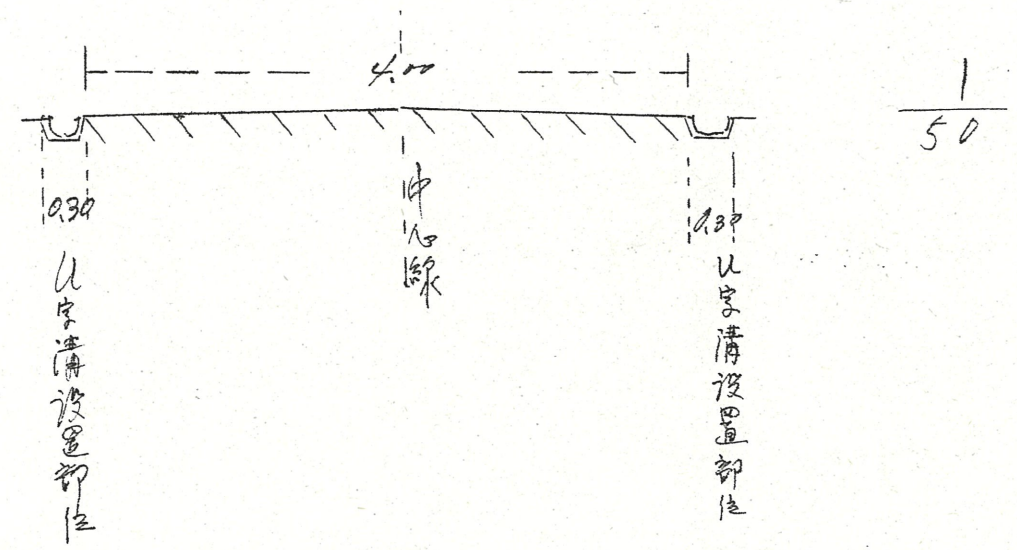 4.00
1
50
0.30
中心線
0.30
U字溝設置部位
U字溝設置部位